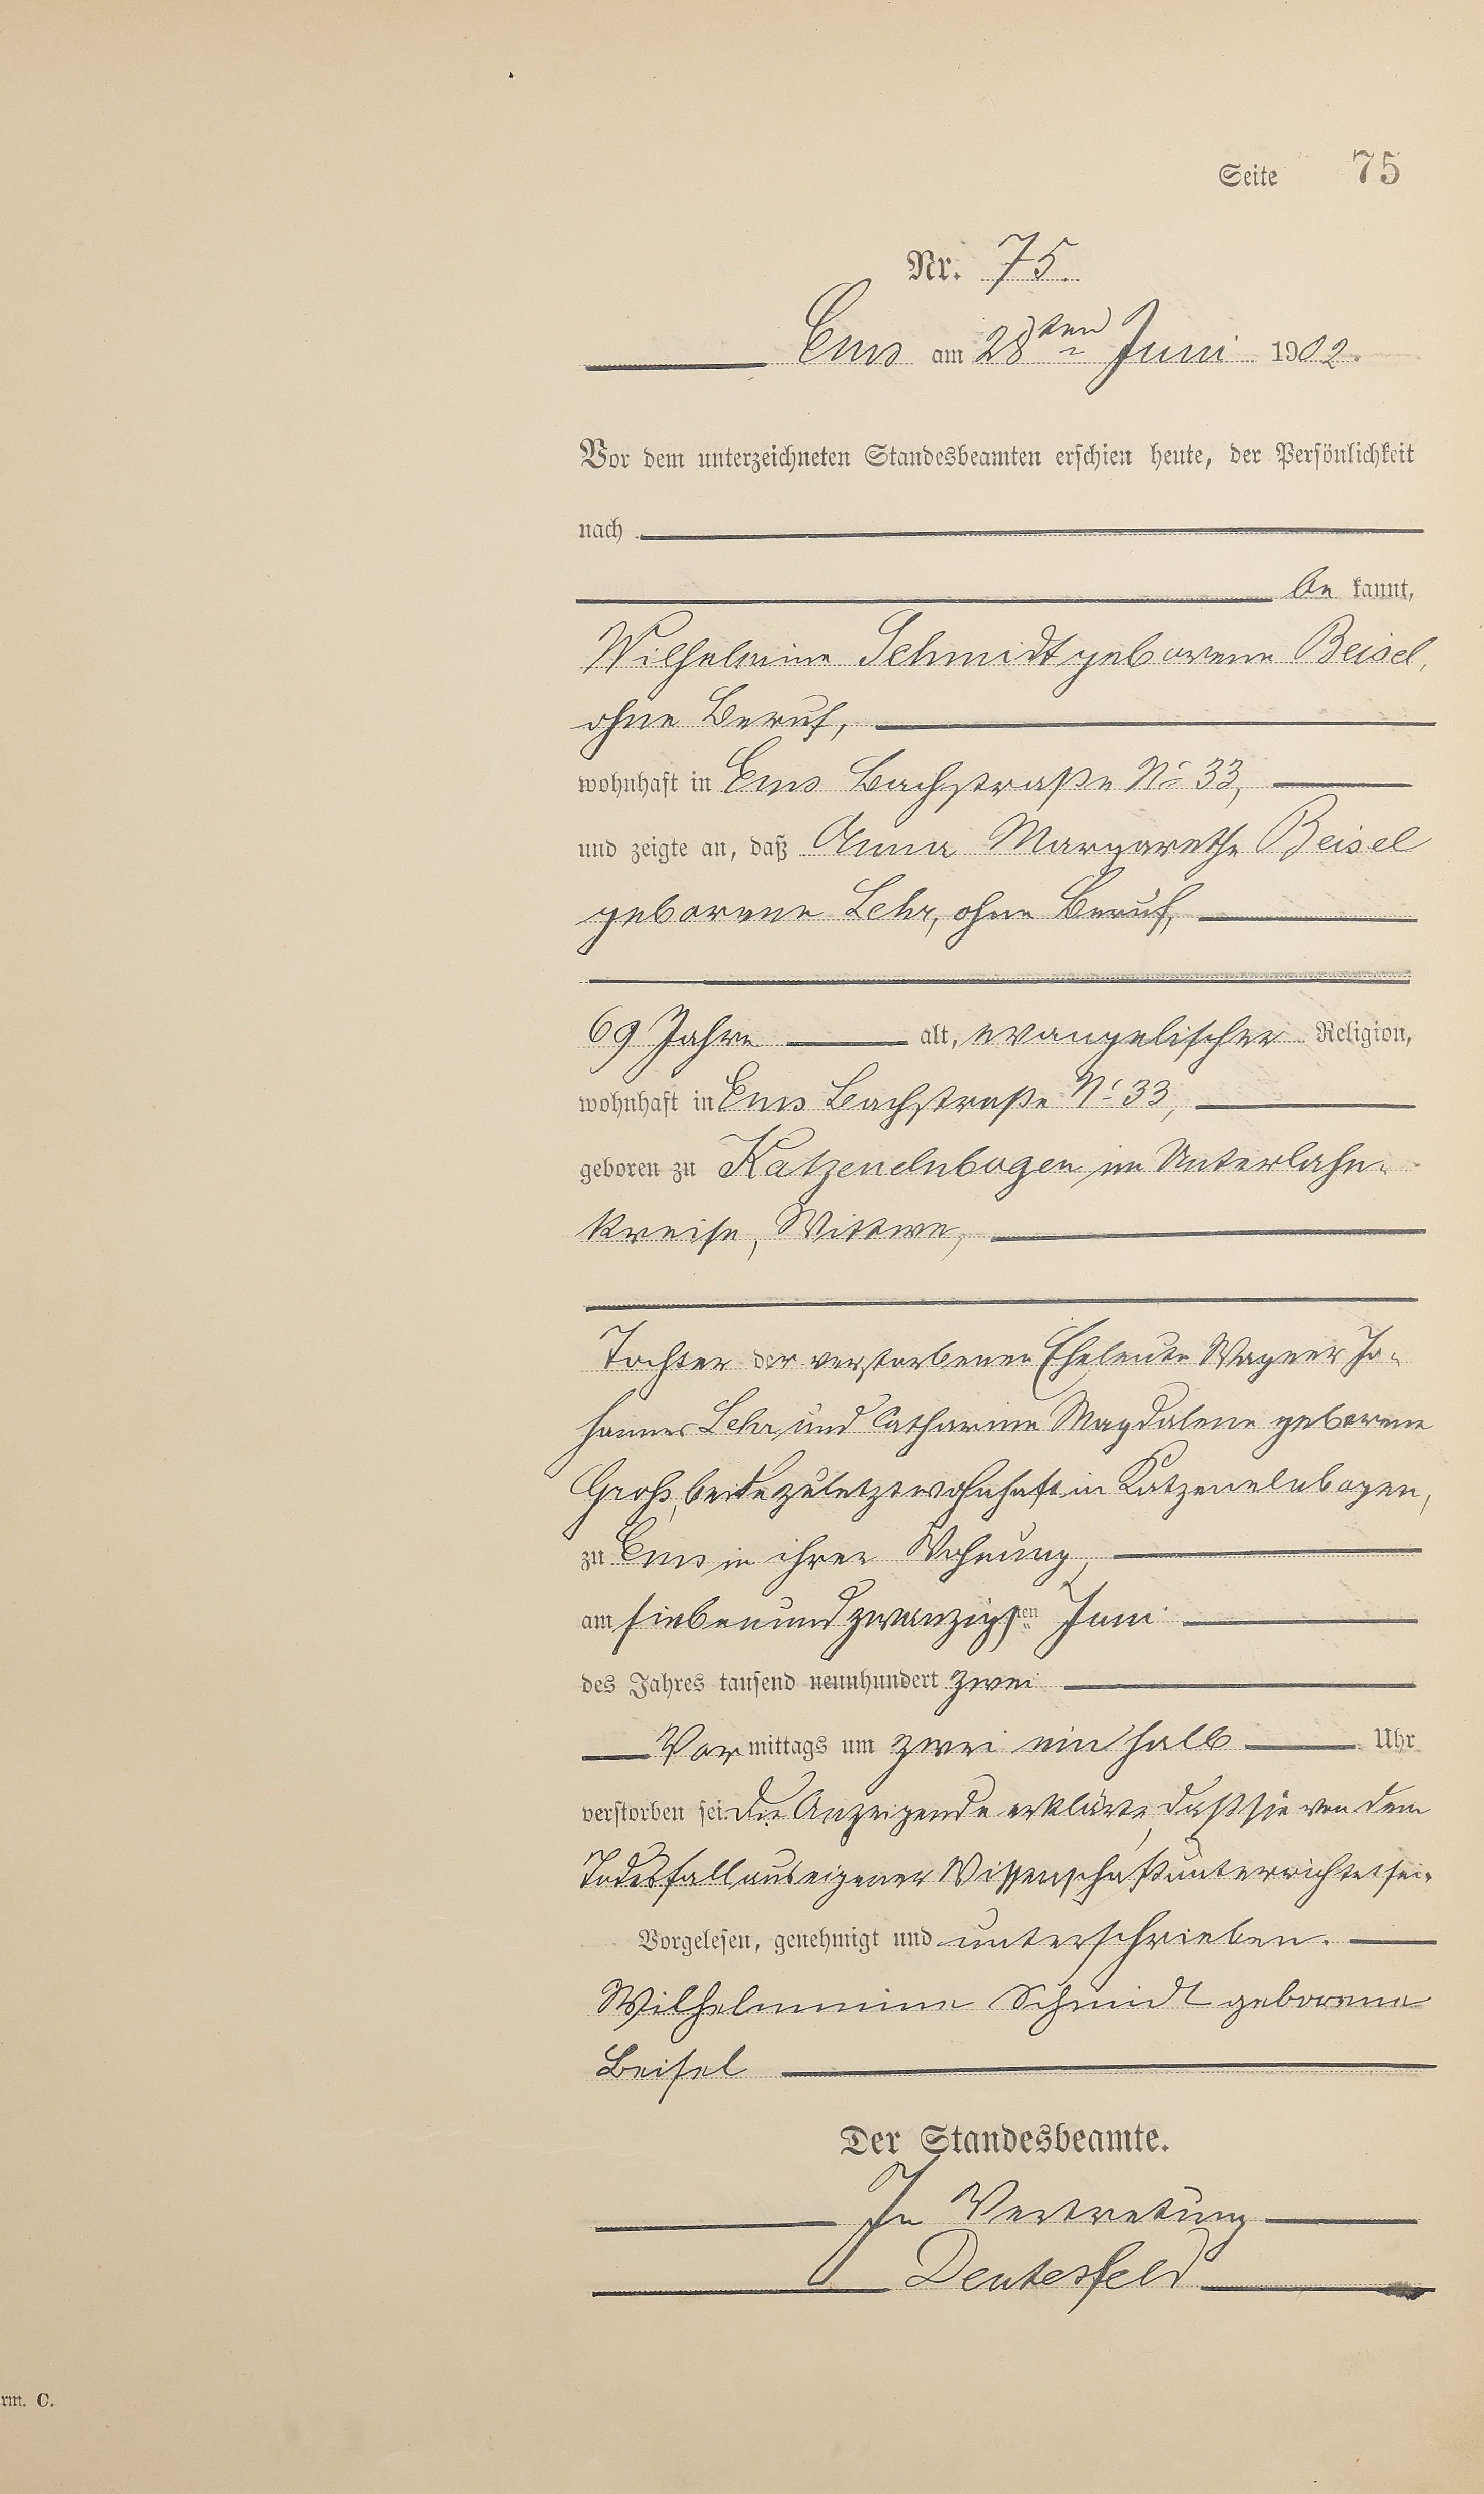 Seite 75
Nr. 75.
Ems am 28ten Juni 1902.
Vor dem unterzeichneten Standesbeamten erschien heute, der Persönlichkeit
nach
be kannt,
Wilhelmine Schmidt geborene Beisel,
ohne Beruf,
wohnhaft in Ems Bachstraße No 33,
und zeigte an, daß Anna Margarethe Beisel
geborene Lehr, ohne Beruf,
69 Jahre alt, evangelischer Religion,
wohnhaft in Ems Bachstraße No 33,
geboren zu Katzenelnbogen im Unterlahn-
kreise, Wittwe,
Tochter der verstorbenen Eheleute Wagner Jo-
hannes Lehr und Catharine Magdalene geborene
Groß, beide zuletzt wohnhaft in Katzenelnbogen,
zu Ems in ihrer Wohnung,
am siebenundzwanzigsten Juni
des Jahres tausend neunhundert zwei
Vor mittags um zwei ein halb Uhr
verstorben sei. Die Anzeigende erklärte, daß sie von dem
Todesfall aus eigener Wissenschaft unterrichtet sei.
Vorgelesen, genehmigt und unterschrieben.
Wilhelmmine Schmidt geborene
Beisel
Der Standesbeamte.
In Vertretung
Deutesfeld
rm. C.